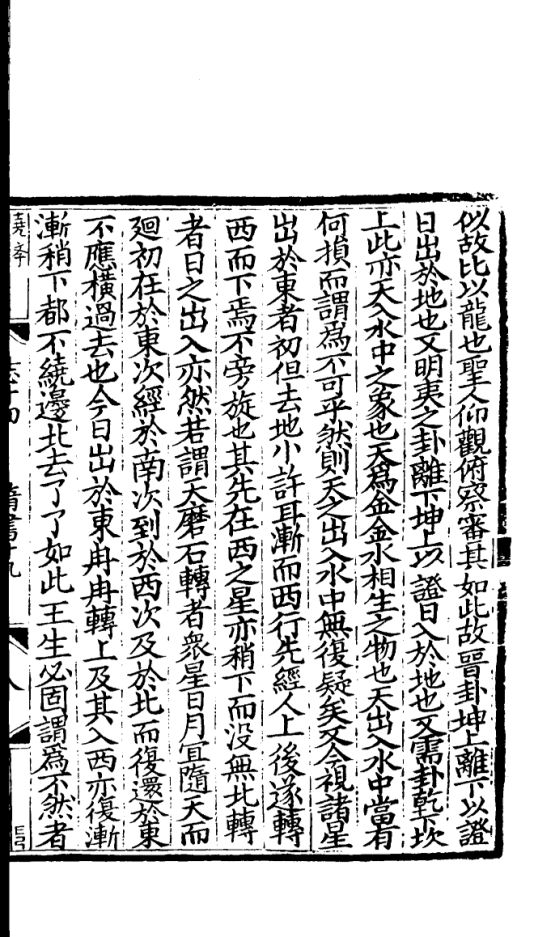 似故比以龍也聖人仰觀俯察審其如此故晉卦坤上離下以證
日出於地也又明夷之卦離下坤上以證日入於地也又需卦乾下坎
上此亦天入水中之象也天爲金金水相生之物也天出入水中當有
何損而謂爲不可乎然則天之出入水中無復疑矣又今視諸星
出於東者初但去地小許耳漸而西行先經人上後遂轉
西而下焉不旁旋也其先在西之星亦稍下而没無北轉
者日之出入亦然若謂天磨石轉者衆星日月宜隨天而
廻初在於東次經於南次到於西次及於北而復還於東
不應橫過去也今日出於東冉冉轉上及其入西亦復漸
漸稍下都不繞邊北去了了如此王生必固謂爲不然者